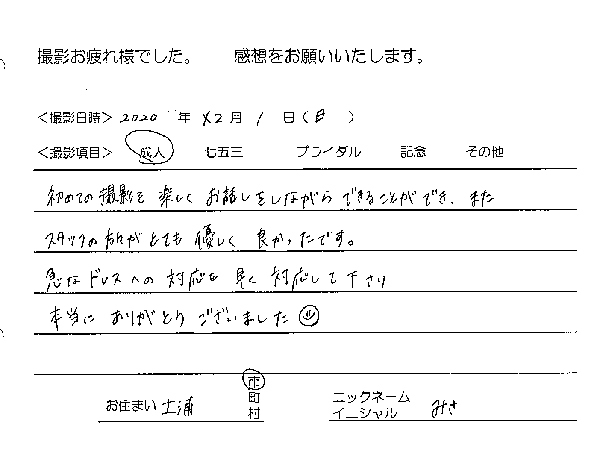 撮影お疲れ様でした。 感想をお願いいたします。
<撮影日時> 2020 年 12月 1 日(日)
<撮影項目> 成人 七五三 ブライダル 記念 その他
初めての撮影を楽しくお話しをしながらできることができ、また
スタッフの方がとても優しく良かったです。
急なドレスへの対応を早く対応して下さり
本当にありがとうございました
お住まい 土浦 市町村 ニックネーム イニシャル みさ